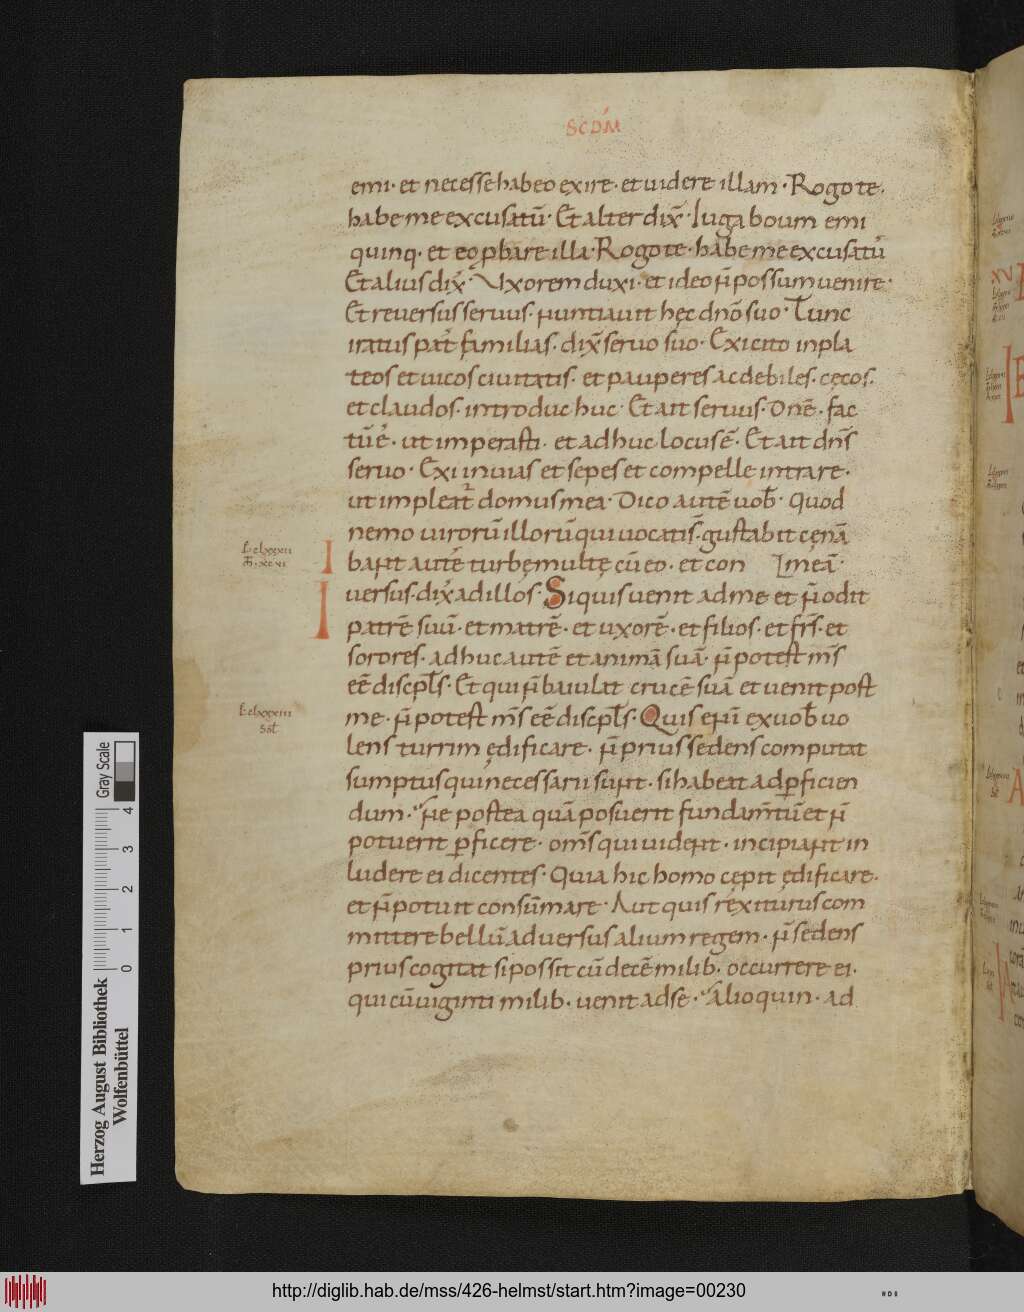 SCDM̄
emi· et necesse habeo exire· et uidere illam· Rogo te·
habe me excusatū· Et alter dix̄· Iuga boum emi
quinq· et eo p̱bare illa· Rogo te· habe me excusatū
Et alius dix̄· Vxorem duxi· et ideo n̄ possum uenire·
Et reuersus seruus· nuntiauit hęc dn̄o suo· Tunc
iratus pat̄ familias· dix̄ seruo suo· Exi cito in pla
teos et uicos ciuitatis· et pauperes ac debiles· cęcos·
et claudos· introduc huc· Et ait seruus· Dn̄e· fac
tū ē· ut imperasti· et adhuc locus ē· Et ait dn̄s
seruo· Exi in uias et sepes et compelle intrare·
ut impleat̄ domus mea· Dico autē uob̄· Quod
nemo uirorū illorū qui uocati s̄· gustabit cęnā
L· clxxxii
M̄· xcvi
I bant autē turbę multę cū eo· et con meā·
I uersus· dix̄ ad illos· Si quis uenit ad me et n̄ odit
patrē suū· et matrē· et uxorē· et filios· et fr̄s· et
sorores· adhuc autē et animā suā· n̄ potest m̄s
eē discpl̄s· Et qui n̄ baiulat crucē suā et uenit post
L· clxxxiii
Sol̄
me· n̄ potest m̄s eē discpl̄s· Quis enī ex uob̄ uo
lens turrim ędificare· n̄ prius sedens computat
sumptus qui necessarii sunt· si habeat ad p̱ficien
dum· Ne postea quā posuerit fundam̄tū et n̄
potuerit p̱ficere· om̄s qui uident· incipiant in
ludere ei dicentes· Quia hic homo cępit ędificare·
et n̄ potuit consūmare· Aut quis rex iturus com
mittere bellū aduersus alium regem· n̄ sedens
prius cogitat si possit cū decē milib· occurrere ei·
qui cū uiginti milib· uenit ad se· Alioquin· ad
Herzog August Bibliothek
Wolfenbüttel
Gray Scale
0 1 2 3 4
http://diglib.hab.de/mss/426-helmst/start.htm?image=00230